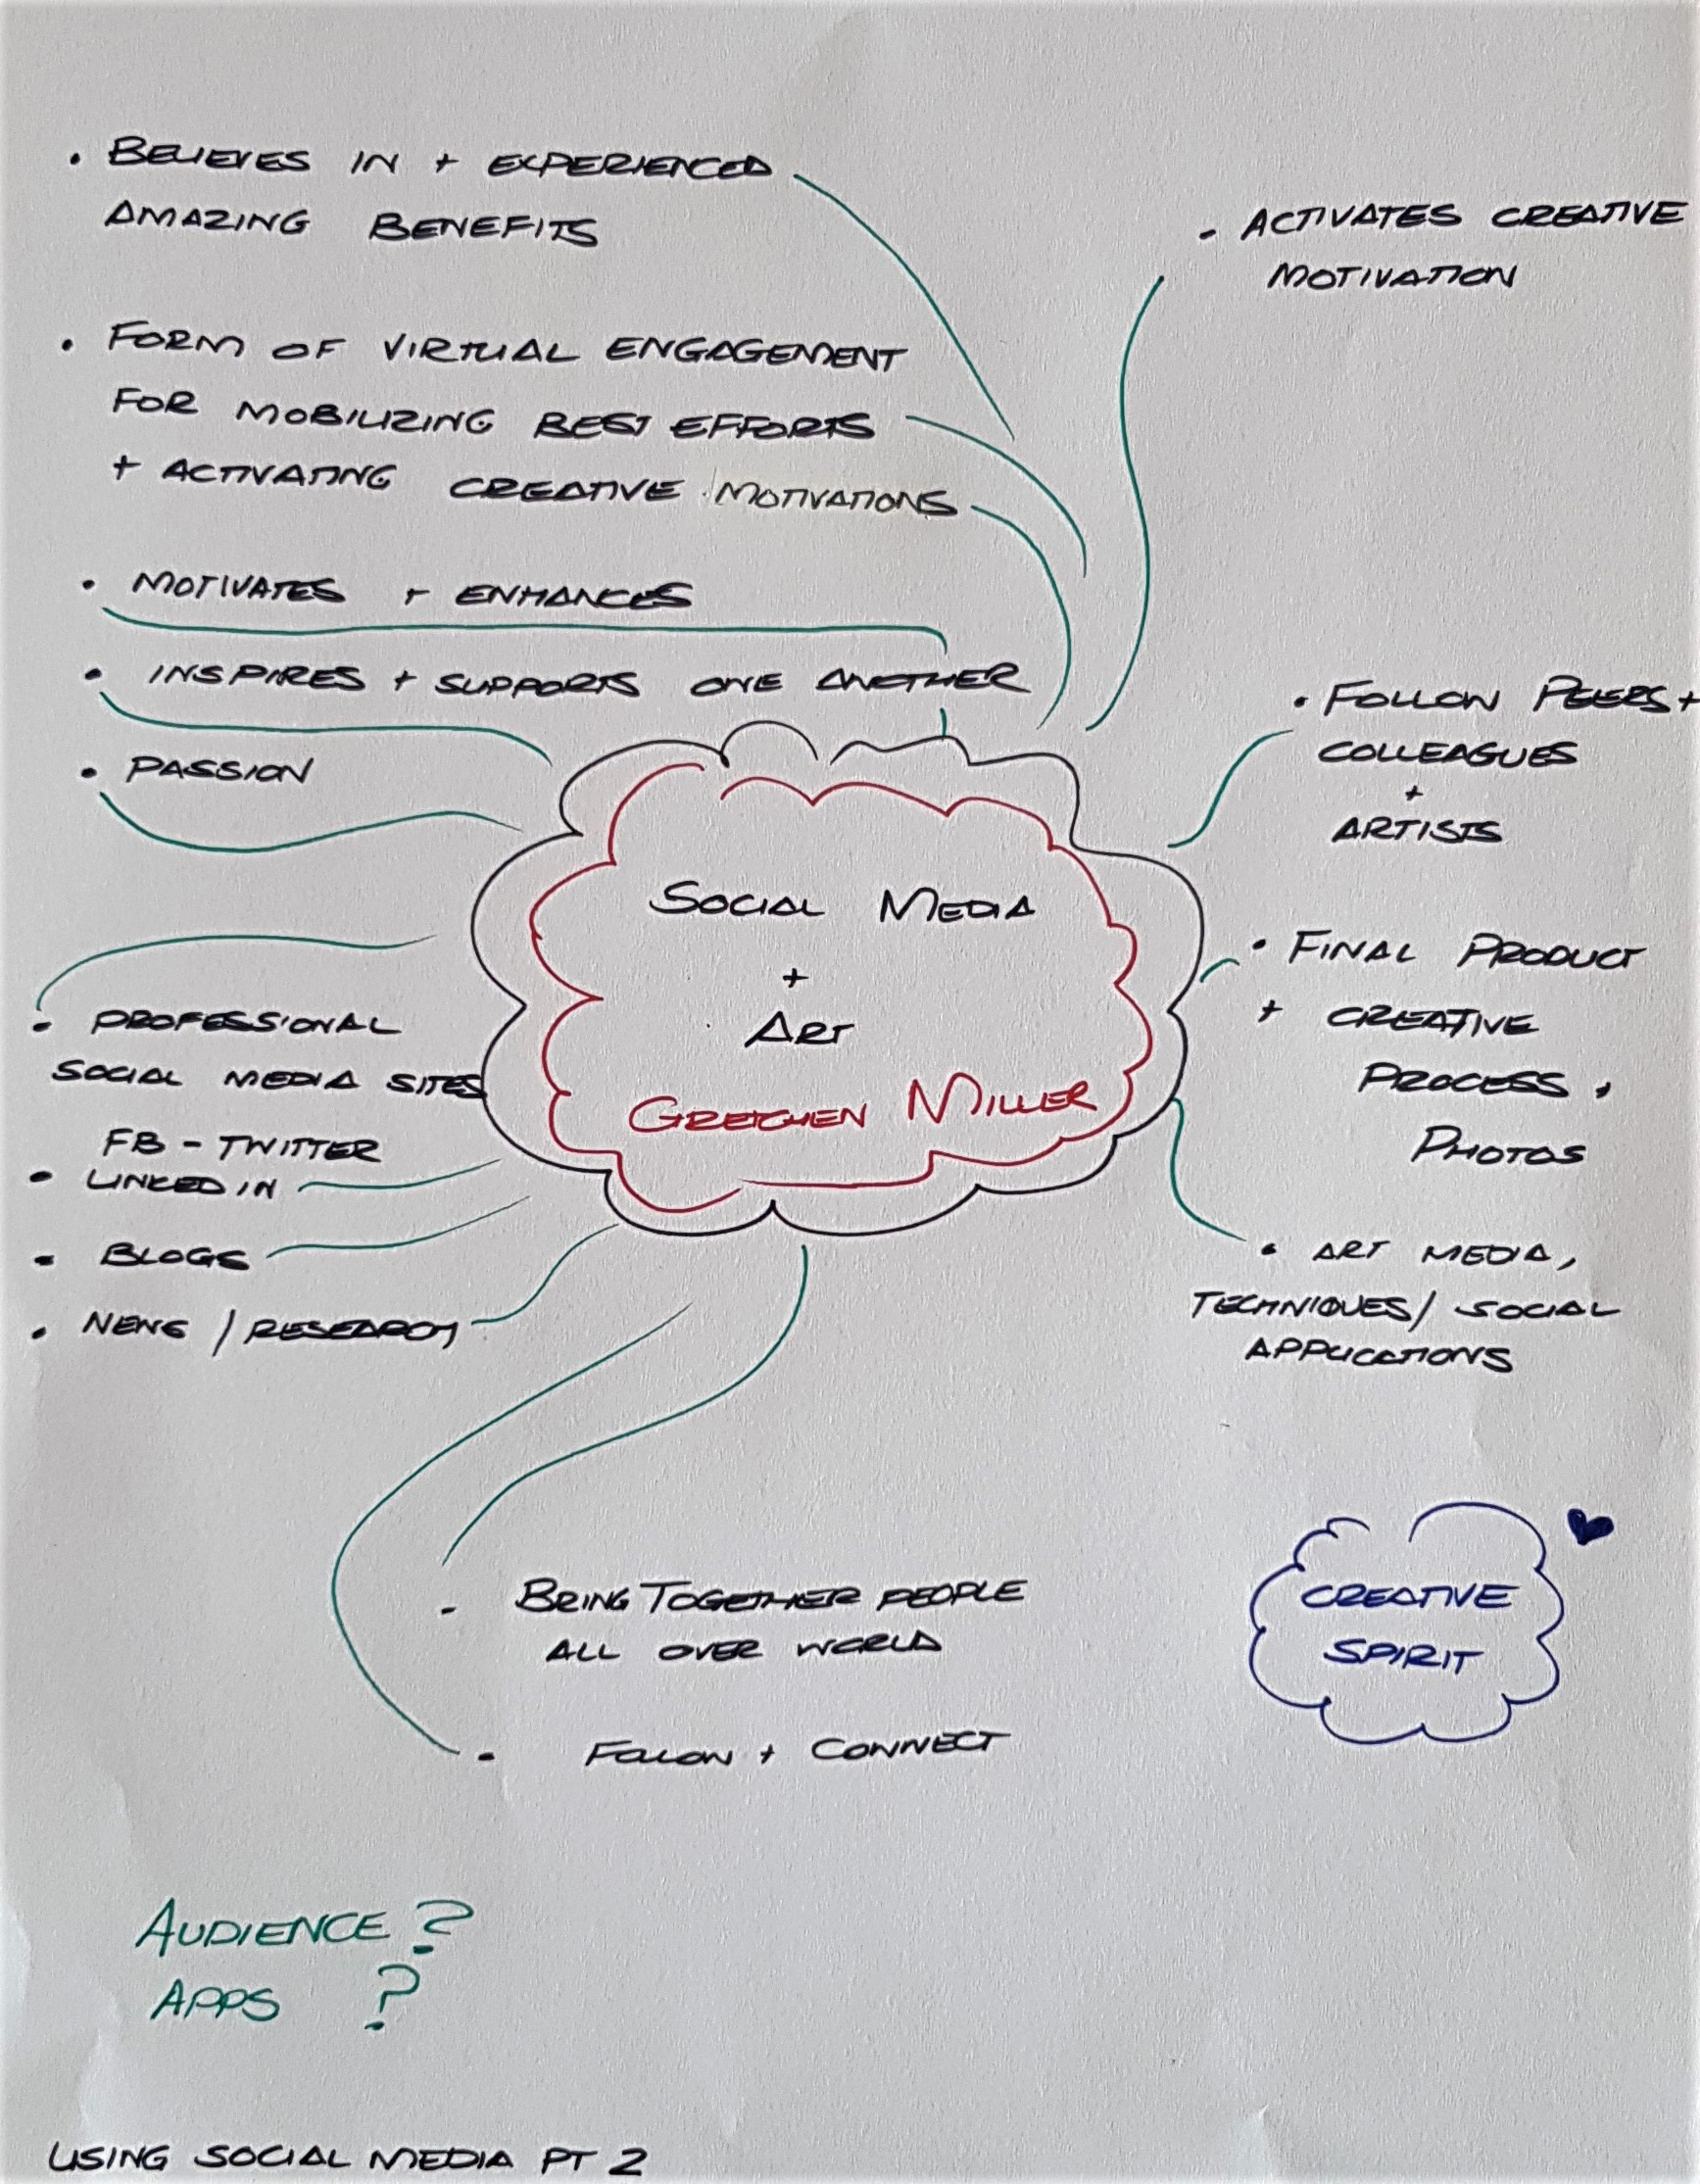 • BELIEVES IN + EXPERIENCED
AMAZING BENEFITS
• FORM OF VIRTUAL ENGAGEMENT
FOR MOBILIZING BEST EFFORTS
+ ACTIVATING CREATIVE MOTIVATIONS
• MOTIVATES + ENHANCES
• INSPIRES + SUPPORTS ONE ANOTHER
• PASSION
• PROFESSIONAL
SOCIAL MEDIA SITES
FB - TWITTER
• LINKED IN
• BLOGS
• NEWS / RESEARCH
SOCIAL MEDIA
+
ART
GRETCHEN MILLER
- ACTIVATES CREATIVE
MOTIVATION
• FOLLOW PEERS +
COLLEAGUES
+
ARTISTS
• FINAL PRODUCT
+ CREATIVE
PROCESS,
PHOTOS
• ART MEDIA,
TECHNIQUES / SOCIAL
APPLICATIONS
- BRING TOGETHER PEOPLE
ALL OVER WORLD
- FOLLOW + CONNECT
CREATIVE
SPIRIT
AUDIENCE ?
APPS ?
USING SOCIAL MEDIA PT 2